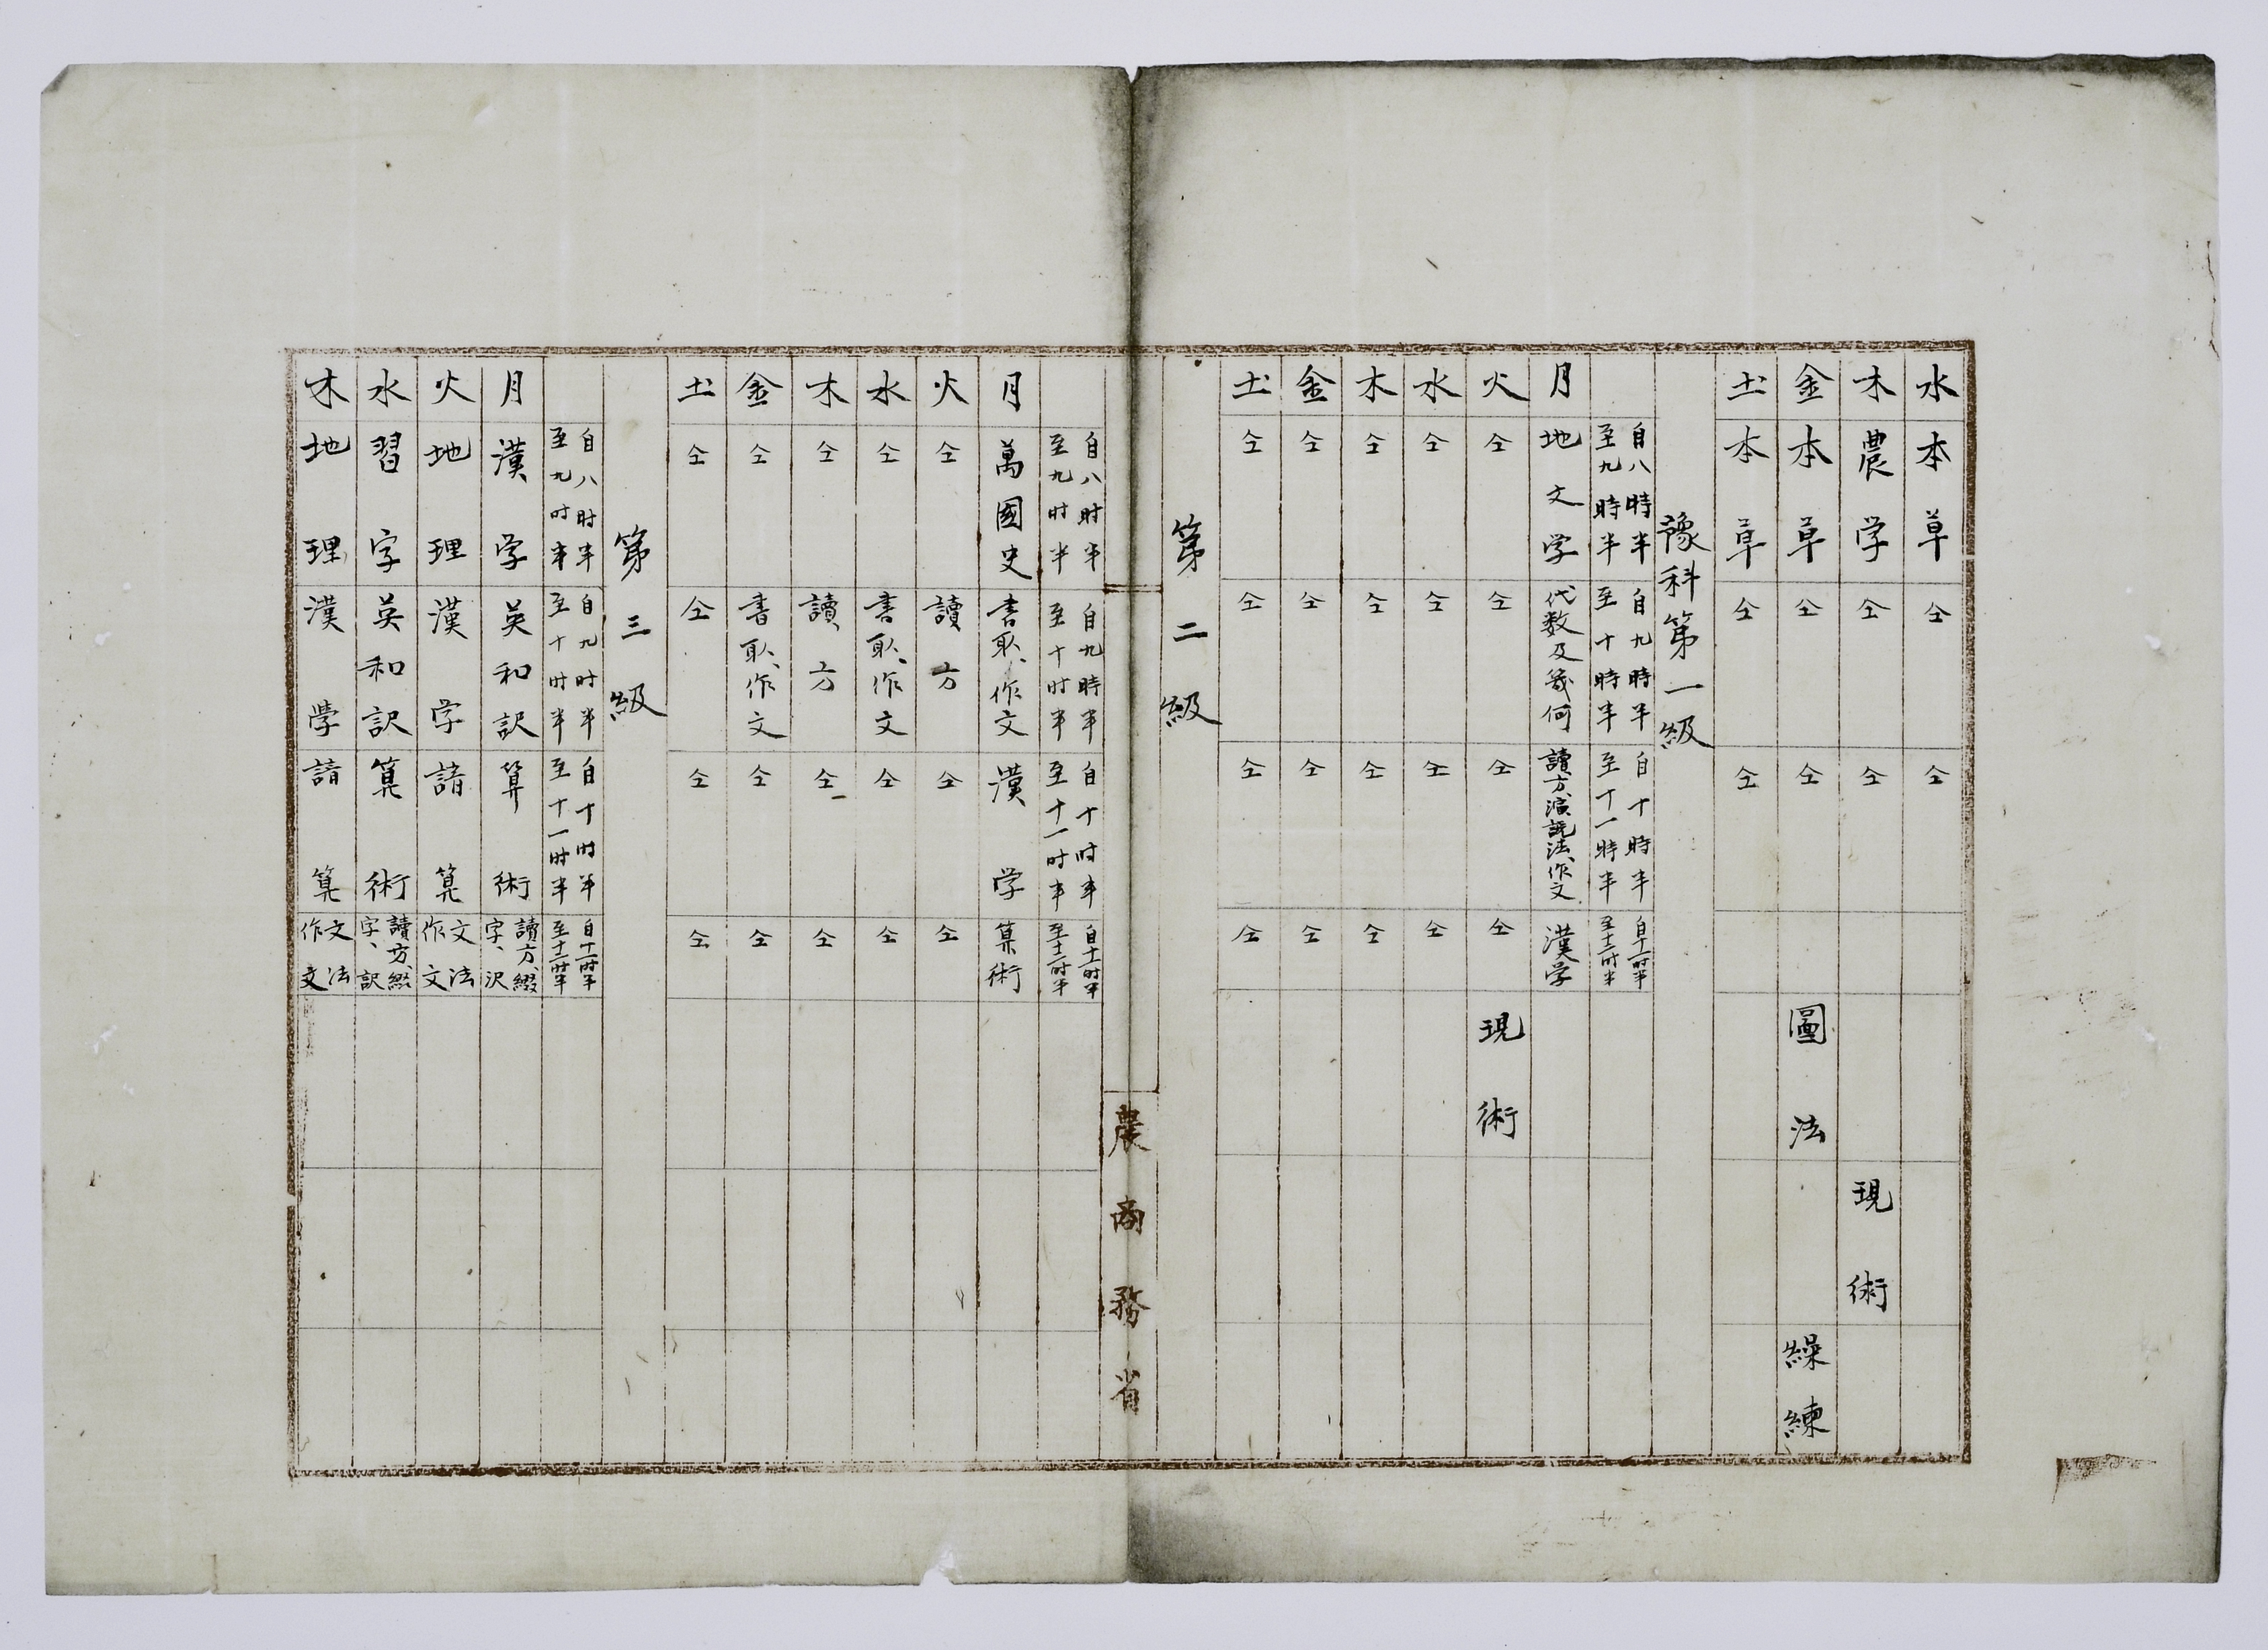 水 本草 仝 仝
木 農学 仝 仝 現術
金 本草 仝 仝 圖法 繰練
土 本草 仝 仝
豫科第一級
自八時半至九時半 自九時半至十時半 自十時半至十一時半 自十一时半至十二时半
月 地文学 代数及幾何 讀方、演説法、作文 漢学
火 仝 仝 仝 仝 現術
水 仝 仝 仝 仝
木 仝 仝 仝 仝
金 仝 仝 仝 仝
土 仝 仝 仝 仝
第二級
農商務省
自八时半至九时半 自九時半至十时半 自十时半至十一时半 自十一时半至十二时半
月 萬國史 書取、作文 漢学 算術
火 仝 讀方 仝 仝
水 仝 書取、作文 仝 仝
木 仝 讀方 仝 仝
金 仝 書取、作文 仝 仝
土 仝 仝 仝 仝
第三級
自八时半至九时半 自九时半至十时半 自十时半至十一时半 自十一时半至十二时半
月 漢学 英和訳 算術 讀方、綴字、沢
火 地理 漢学 諳算 文法作文
水 習字 英和訳 算術 讀方、綴字、訳
木 地理 漢學 諳算 文法作文